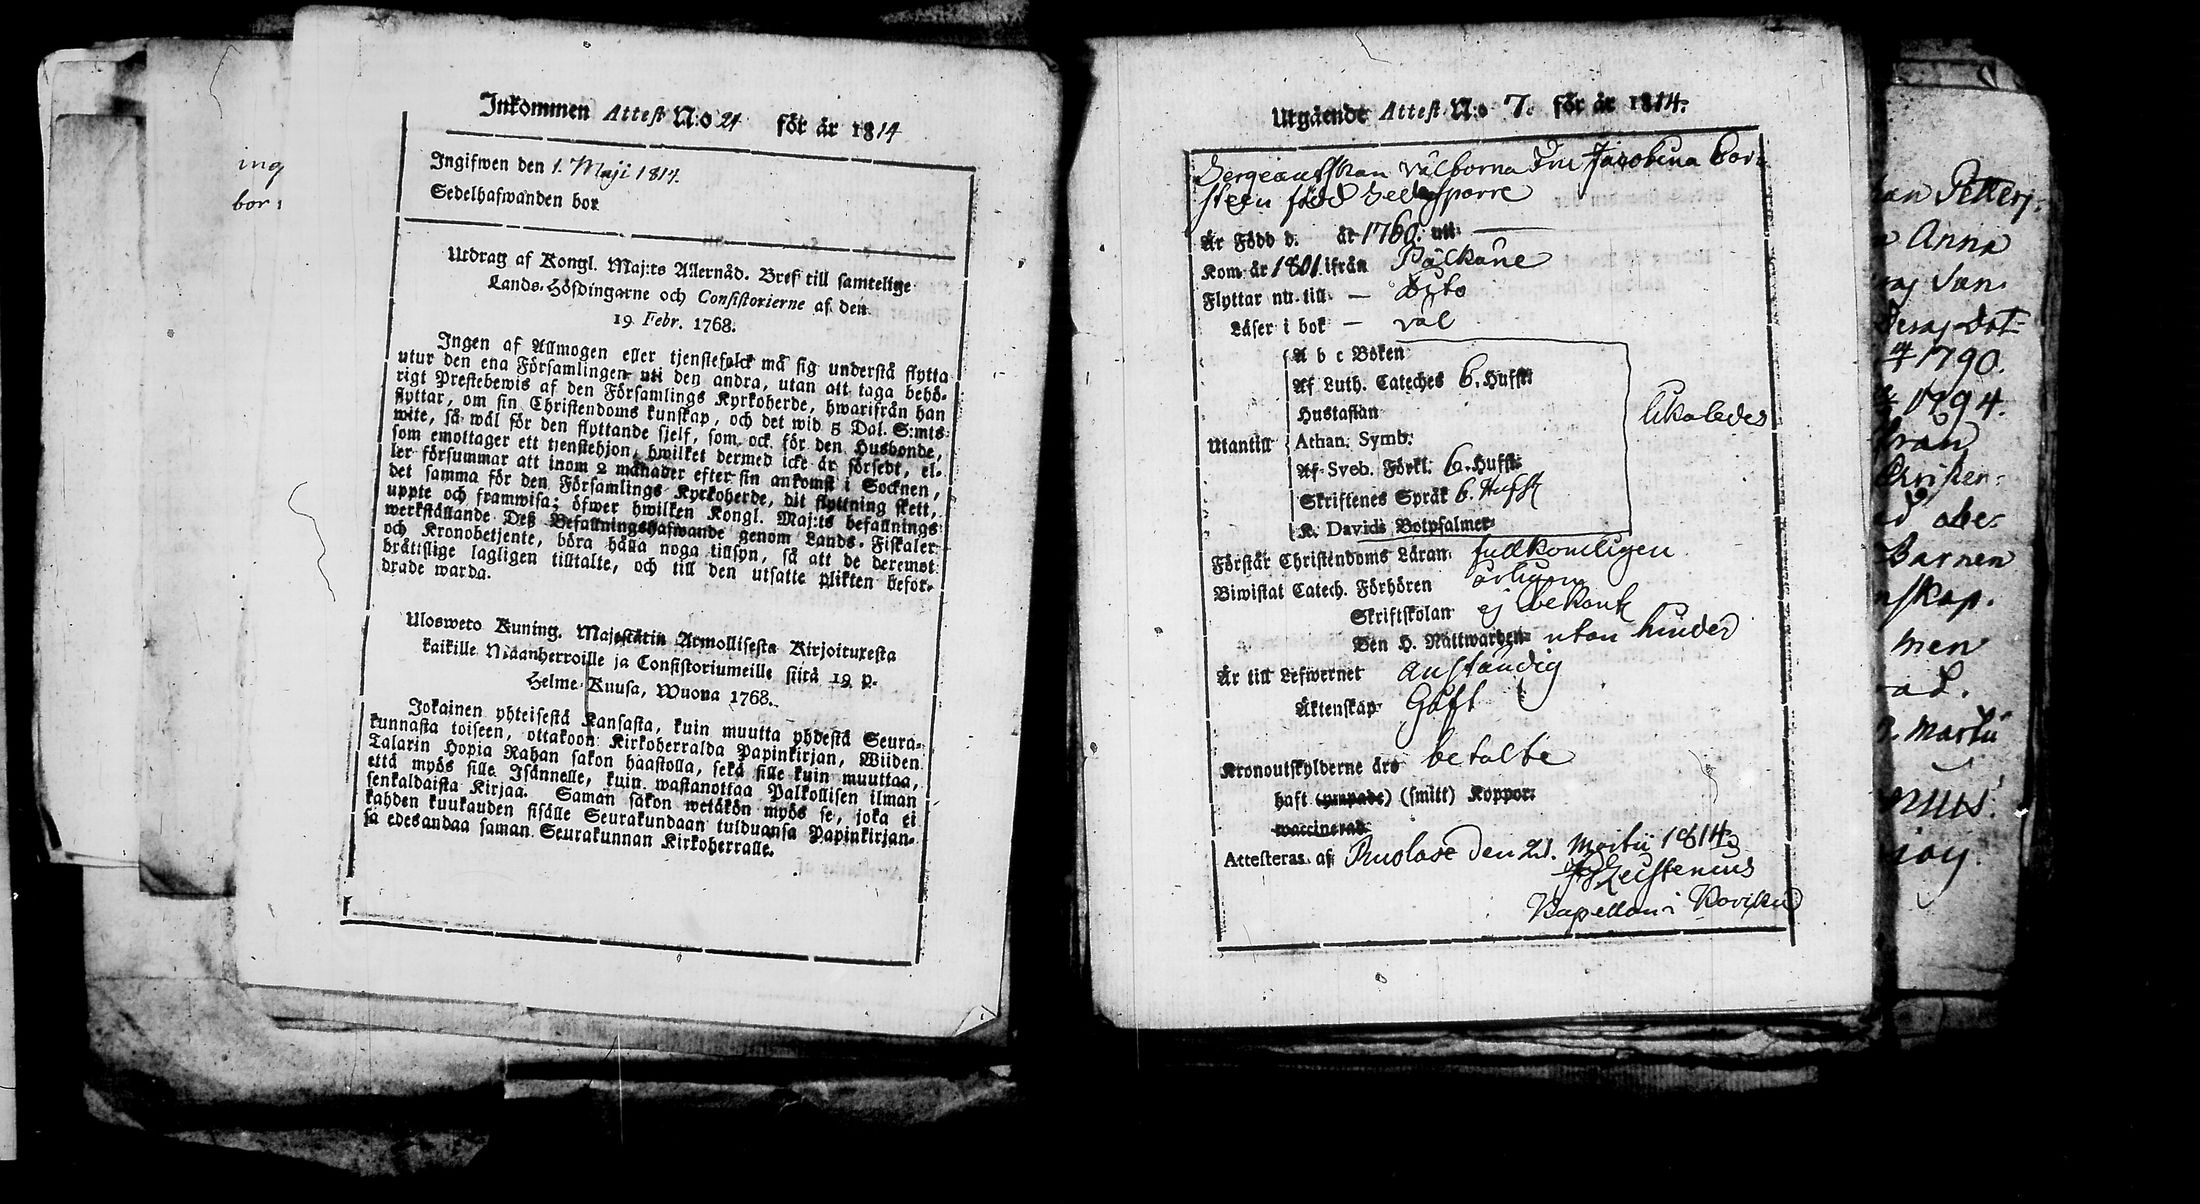 ing
bor:
Inkommen Attest N:o 21 för år 1814
Ingifwen den 1. Maji 1814.
Sedelhafwanden bor
Utdrag af Kongl. Maj:ts Allernåd. Bref till samtelige
Lands-Höfdingarne och Consistorierne af den
19 Febr. 1768.
Ingen af Allmogen eller tjenstefolck må sig understå flytta
utur den ena Församlingen uti den andra, utan att taga behö-
rigt Prestebewis af den Församlings Kyrkoherde, hwarifrån han
flyttar, om sin Christendoms kunskap, och det wid 5 Dal. S:mts
wite, så wäl för den flyttande sjelf, som ock för den Husbonde,
som emottager ett tjenstehjon, hwilket dermed icke är försedt, el-
ler försummar att inom 2 månader efter sin ankomst i Socknen,
det samma för den Församlings Kyrkoherde, dit flyttning skett,
uppte och framwisa; öfwer hwilken Kongl. Maj:ts befallnings
werkställande Deß Befallningshafwande genom Lands-Fiskaler
och Kronobetjente, böra hålla noga tillsyn, så att de deremot
bråttslige lagligen tilltalte, och till den utsatte plikten befor-
drade warda.
Ulosweto Kuning. Majestätin Armollisesta Kirjoituxesta
kaikille Maanherroille ja Consistoriumeille siitä 19 p.
Helme-Kuusa, Wuona 1768.
Jokainen yhteisestä Kansasta, kuin muutta yhdestä Seura-
kunnasta toiseen, ottakoon Kirkoherralda Papinkirjan, Wiiden
Talarin Hopia Rahan sakon haastolla, sekä sille kuin muuttaa,
että myös sille Isännelle, kuin wastanottaa Palkollisen ilman
senkaldaista Kirjaa. Saman sakon wetäkön myös se, joka ei
kahden kuukauden sisälle Seurakundaan tulduansa Papinkirjan-
sa edesandaa saman Seurakunnan Kirkoherralle.
Utgående Attest N:o 7. för år 1814.
Sergeantskan välborna Fru Jacobina Bor-
steen född Segesparre
Är Född d. år 1760. uti
Kom år 1801 ifrån Pälkäne
Flyttar nu till — dito
Läser i bok — väl
A b c Boken
Af Luth. Cateches 6. Hufst.
Hustaflan
likaledes
Utantill Athan. Symb.
Af Sveb. Förkl. 6. Hufst.
Skriftenes Språk 6. Hufst
K. Davids Botpsalmer
Förstår Christendoms Läran fullkomligen
Biwistat Catech. Förhören årligen
Skriftskolan ej bekant
Den H. Nattwarden utan hinder
Är till Lefwernet anständig
Äktenskap Gift
Kronoutskylderne äro betalte
haft (ympade) (smitt) Koppor.
waccinerad
Attesteras af Ruolax den 21. Martii 1814
Kapellan i
han Petters
Anna
San-
dot-
1790.
1794.
från
Christen-
Barnen
skap.
men
Martii